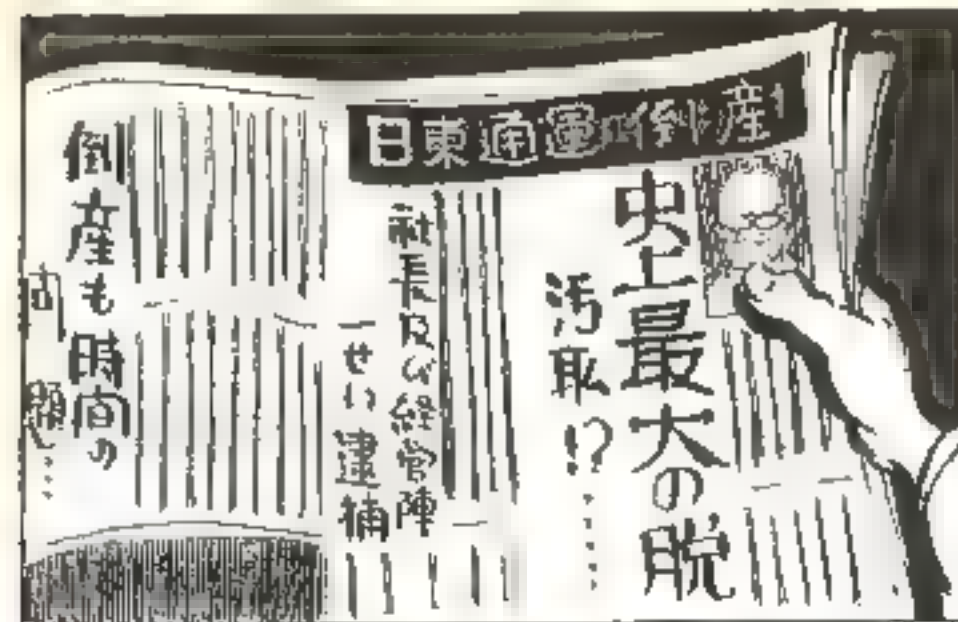 日東通運倒産!
史上最大の脱
汚職!?……
社長及び経営陣
一せい逮捕
倒産も時間の
問題…